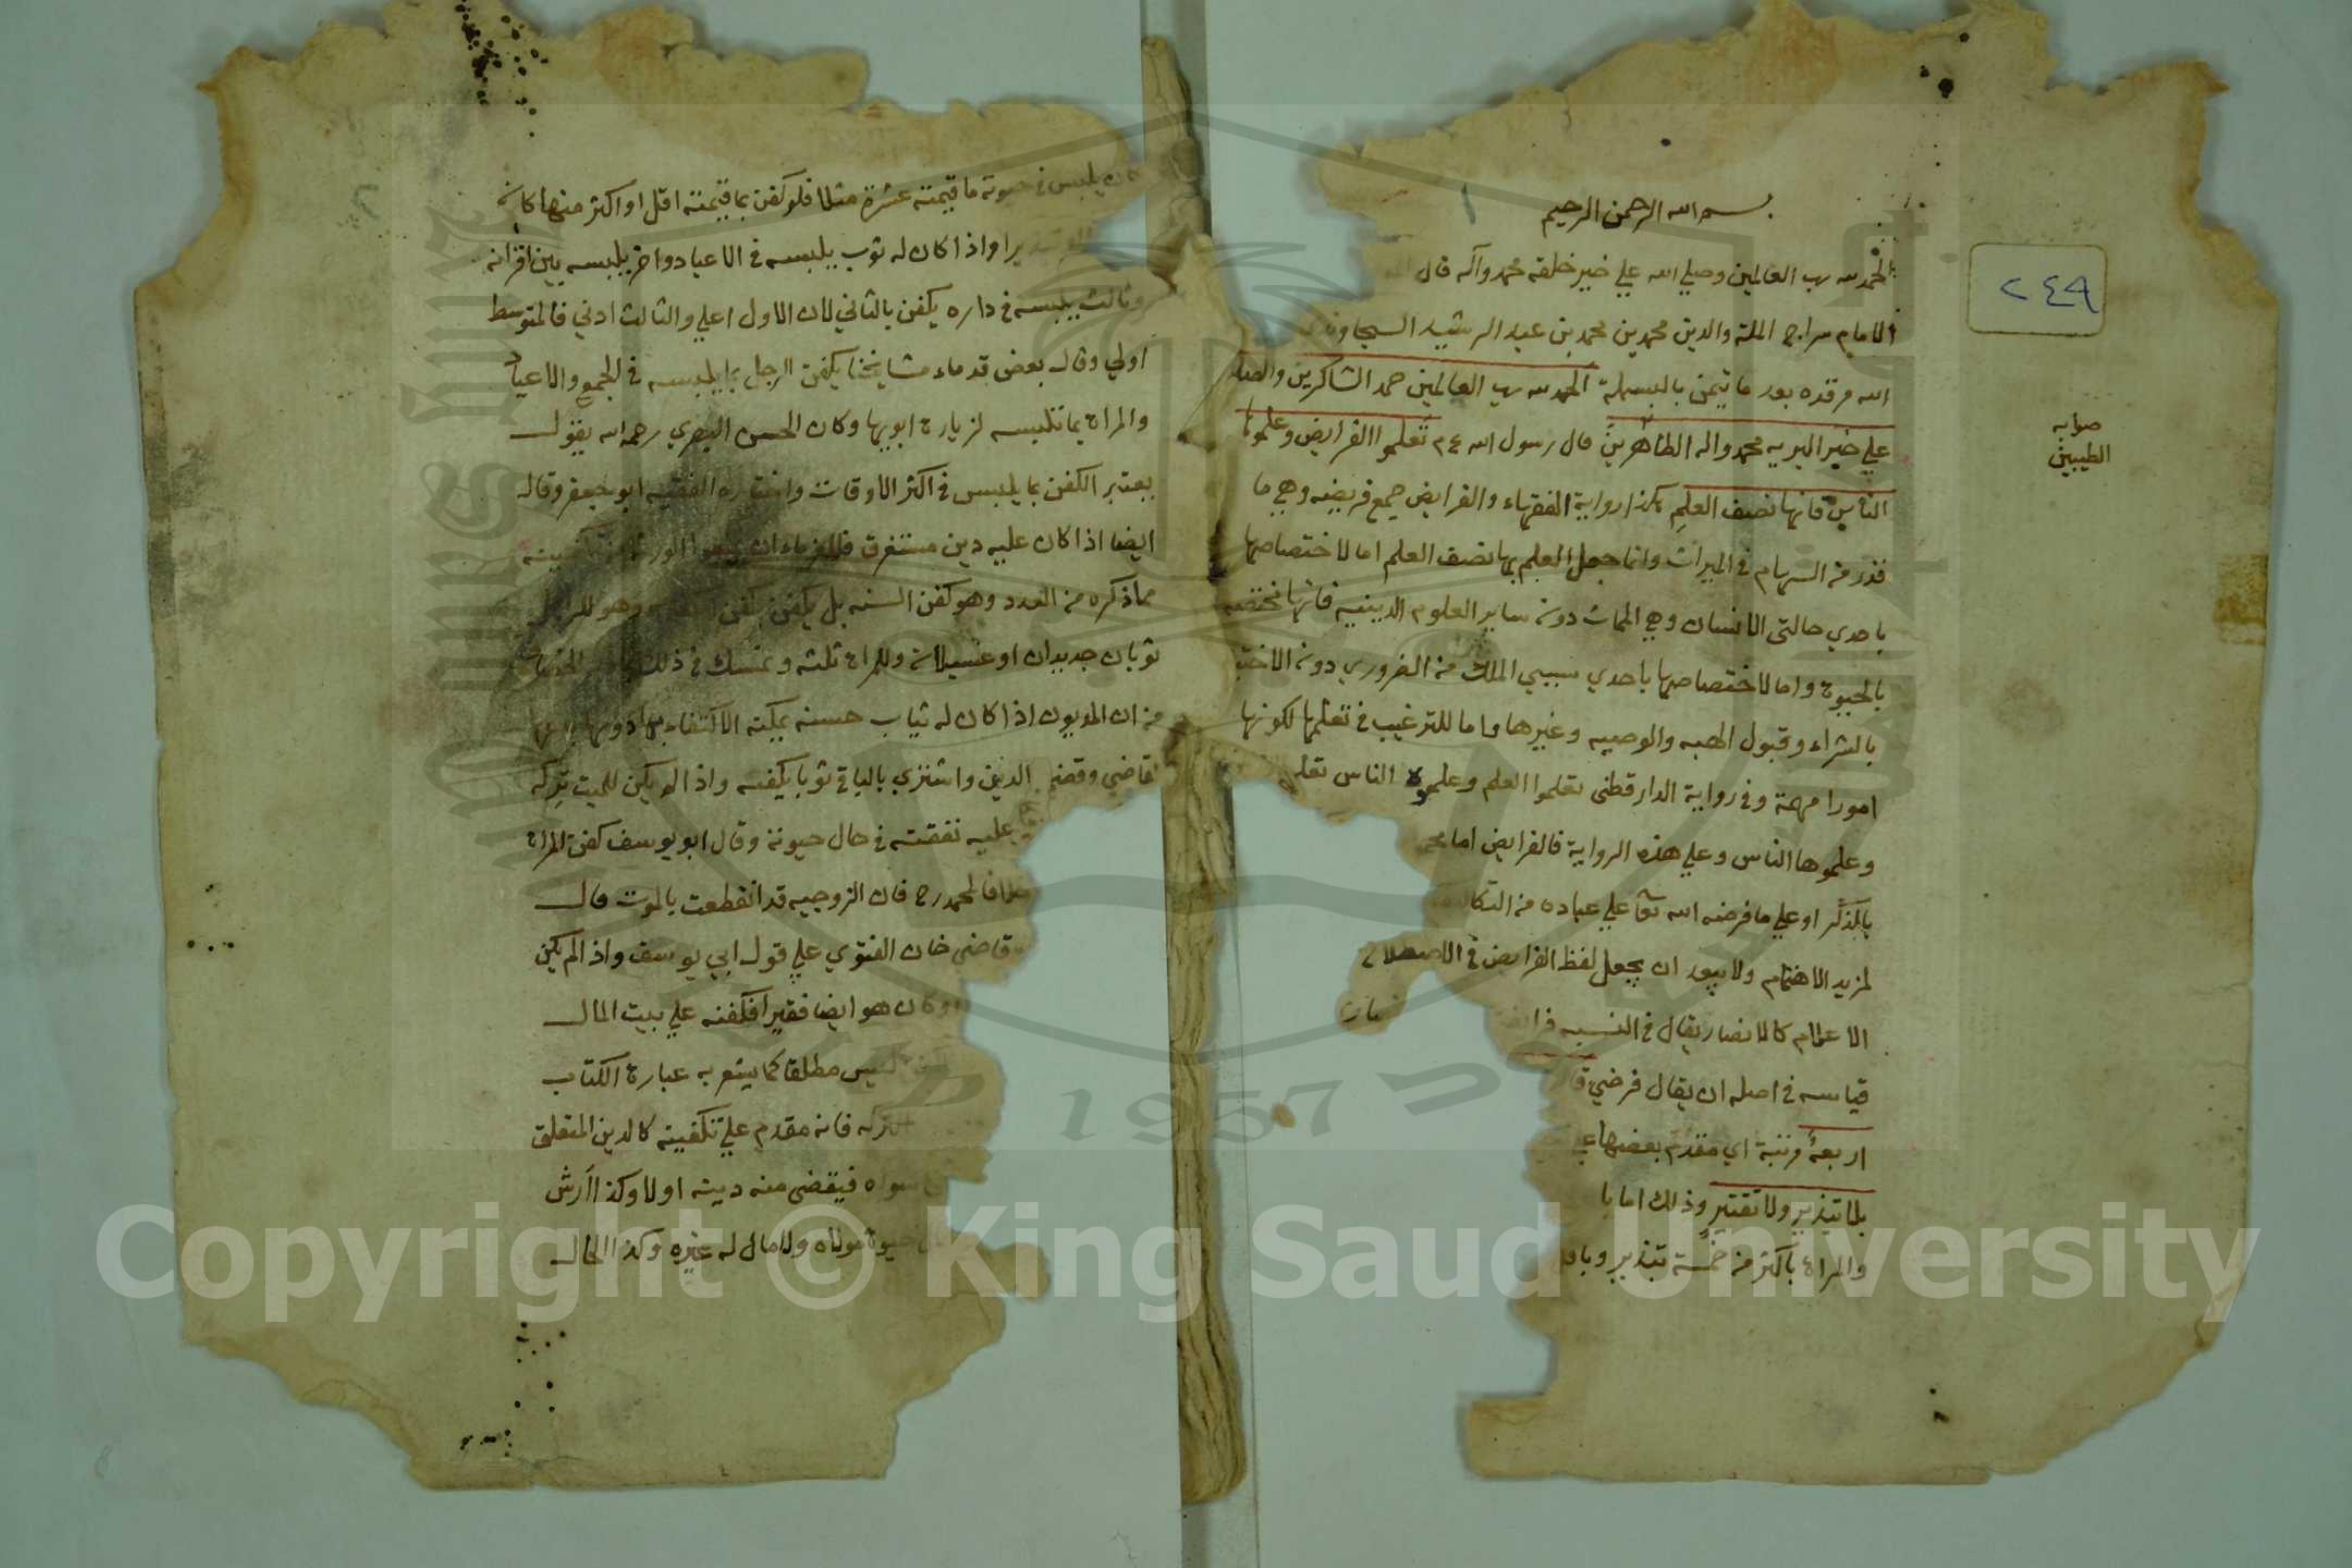 بسم الله الرحمن الرحيم
الحمد لله رب العالمين وصلي الله علي خير خلقه محمد وآله قال
الامام سراج الملة والدين محمد بن محمد بن عبد الرشيد السجاوند
الله مرقده بعد ما تيمن بالبسملة الحمد لله رب العالمين حمد الشاكرين والصلا
علي خير البريه محمد واله الطاهرين قال رسول الله ع م تعلموا الفرايض وعلموها
الناس فانها نصف العلم هكذا رواية الفقهاء والفرايض جمع فريضه وهي ما
قدر من السهام في الميراث وانما جعل العلم بها نصف العلم اما لاختصاصها
باحدي حالتى الانسان وهي الممات دون ساير العلوم الدينيه فانها مختصه
بالحيوة واما لاختصاصها باحدي سببي الملك من الضروري دون الاختي
بالشراء وقبول الهبه والوصيه وغيرها واما للترغيب في تعلمها لكونها
امورا مهمة وفي رواية الدارقطنى تعلموا العلم وعلموه الناس تعل
وعلموها الناس وعلي هذه الرواية فالفرايض اما
بالذكر او علي ما فرضه الله تعا علي عباده من التكال
لمزيد الاهتمام ولا يبعد ان يجعل لفظ الفرايض في الاصطلاح
الاعلام كالانصار يقال في النسبه فرايض
قياسه في اصله ان يقال فرضي قا
اربعة مرتبة اي مقدم بعضها ع
بلا تبذير ولا تقتير وذلك اما با
والمراة باكثر من خمسة تبذير وبا
٢٤٩
صوابه
الطيبين
١
كان يلبس في حيوته ما قيمته عشرة مثلا فلو كفن بما قيمته اقل او اكثر منها كان
واذا كان له ثوب يلبسه في الاعياد واخر يلبسه بين اقرانه
وثالث يلبسه في داره يكفن بالثاني لان الاول اعلي والثالث ادني فالمتوسط
اولي وقال بعض قدماء مشايخنا يكفن الرجل بما يلبسه في الجمع والاعياد
والمراة بما تلبسه لزيارة ابويها وكان الحسن البصري رحمه الله يقول
يعتبر الكفن بما يلبس في اكثر الاوقات واختاره الفقيه ابو جعفر وقال
ايضا اذا كان عليه دين مستغرق فللغرماء ان يمنعوا الورثة من تكفينه
بما ذكره من العدد وهو كفن السنه بل يكفن بكفن الكفايه وهو للرجل
ثوبان جديدان او غسيلان وللمراة ثلثه وتمسك في ذلك
من ان المديون اذا كان له ثياب حسنه يمكنه الاكتفاء بما دونها
القاضي وقضي الدين واشتري بالباقي ثوبا يكفيه واذا لم يكن للميت تركه
عليه نفقته في حال حيوته وقال ابو يوسف كفن المراة
خلافا لمحمد رح فان الزوجيه قد انقطعت بالموت قال
قاضي خان الفتوي علي قول ابي يوسف واذا لم يكن
او كان هو ايضا فقيرا فكفنه علي بيت المال
ليس مطلقا كما يشعر به عبارة الكتاب
التركه فانه مقدم علي تكفينه كالدين المتعلق
سواه فيقضى منه دينه اولا وكذا ارش
حيوة مولاه ولا مال له غيره وكذا الحال
Copyright © King Saud University
1957